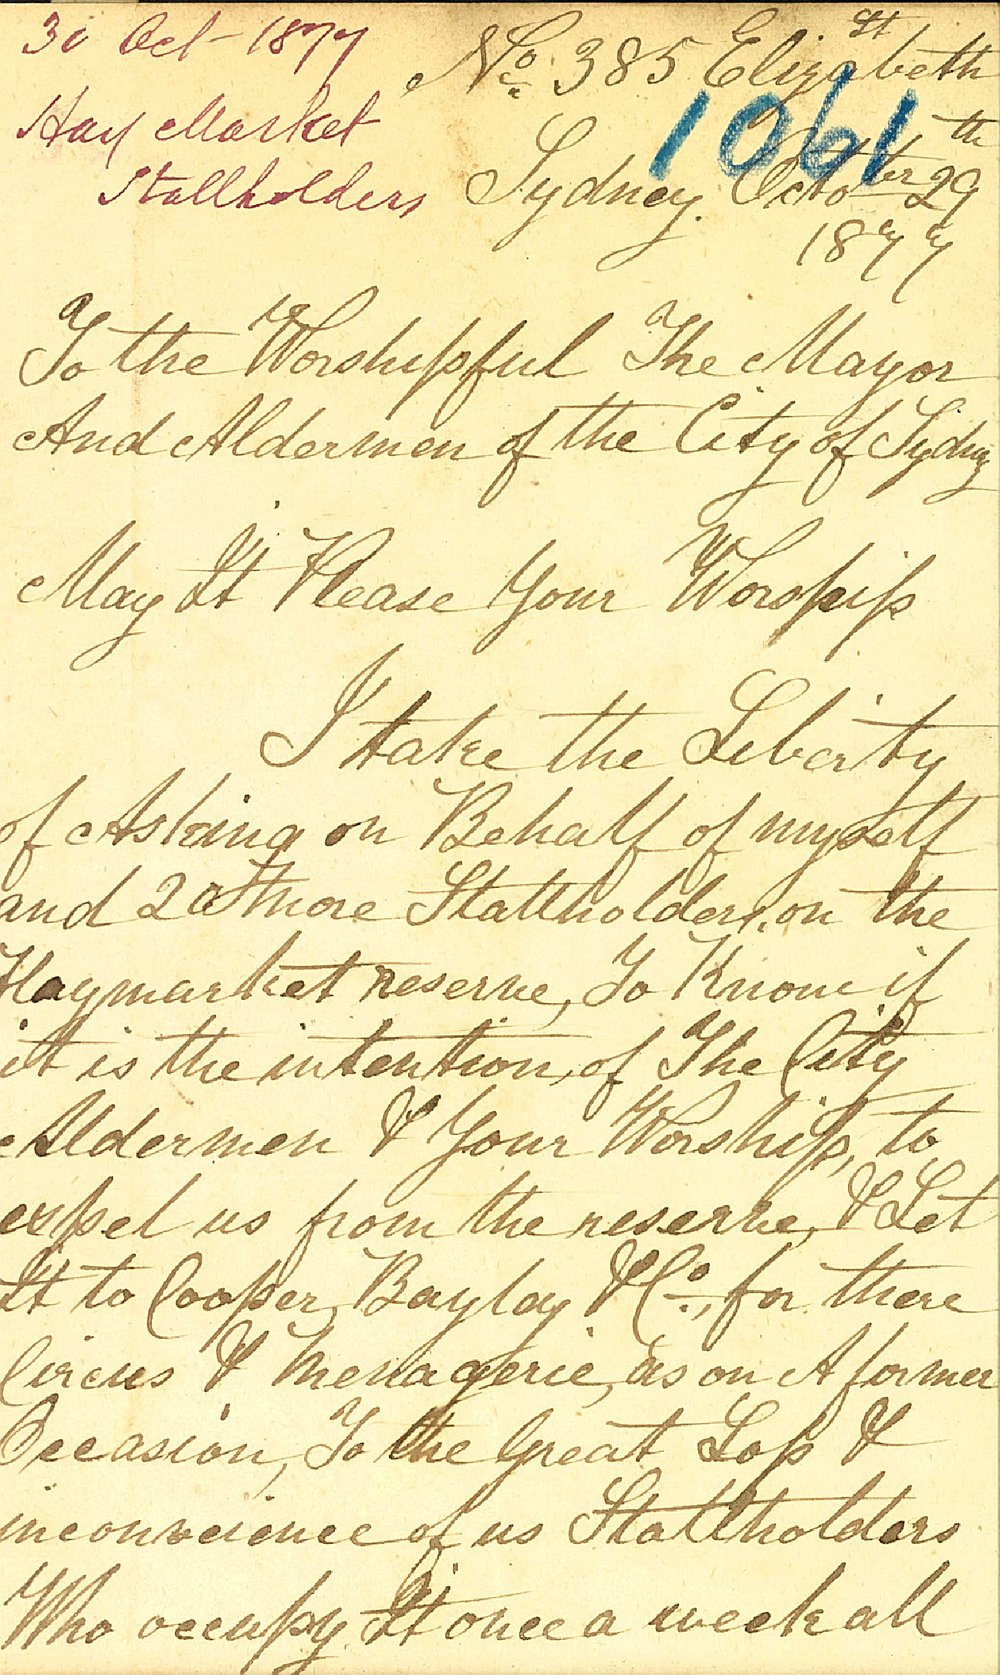 30 Oct 1877
Hay Market
Stallholders
No. 385 Elizabeth St
1061
Sydney. October 29th
1877
To the Worshipful The Mayor
And Aldermen of the City of Sydney
May It Please Your Worship
I take the Liberty
of Asking on Behalf of myself
and 20 more Stallholders, on the
Haymarket reserve, To Know if
it is the intention, of The City
Aldermen & Your Worship, to
expel us from the reserve, & Let
It to Cooper, Bayley & Co., for there
Circus & Menagerie, as on A former
Occasion, To the Great Loss &
inconveience of us Stallholders
Who occupy It once a week all